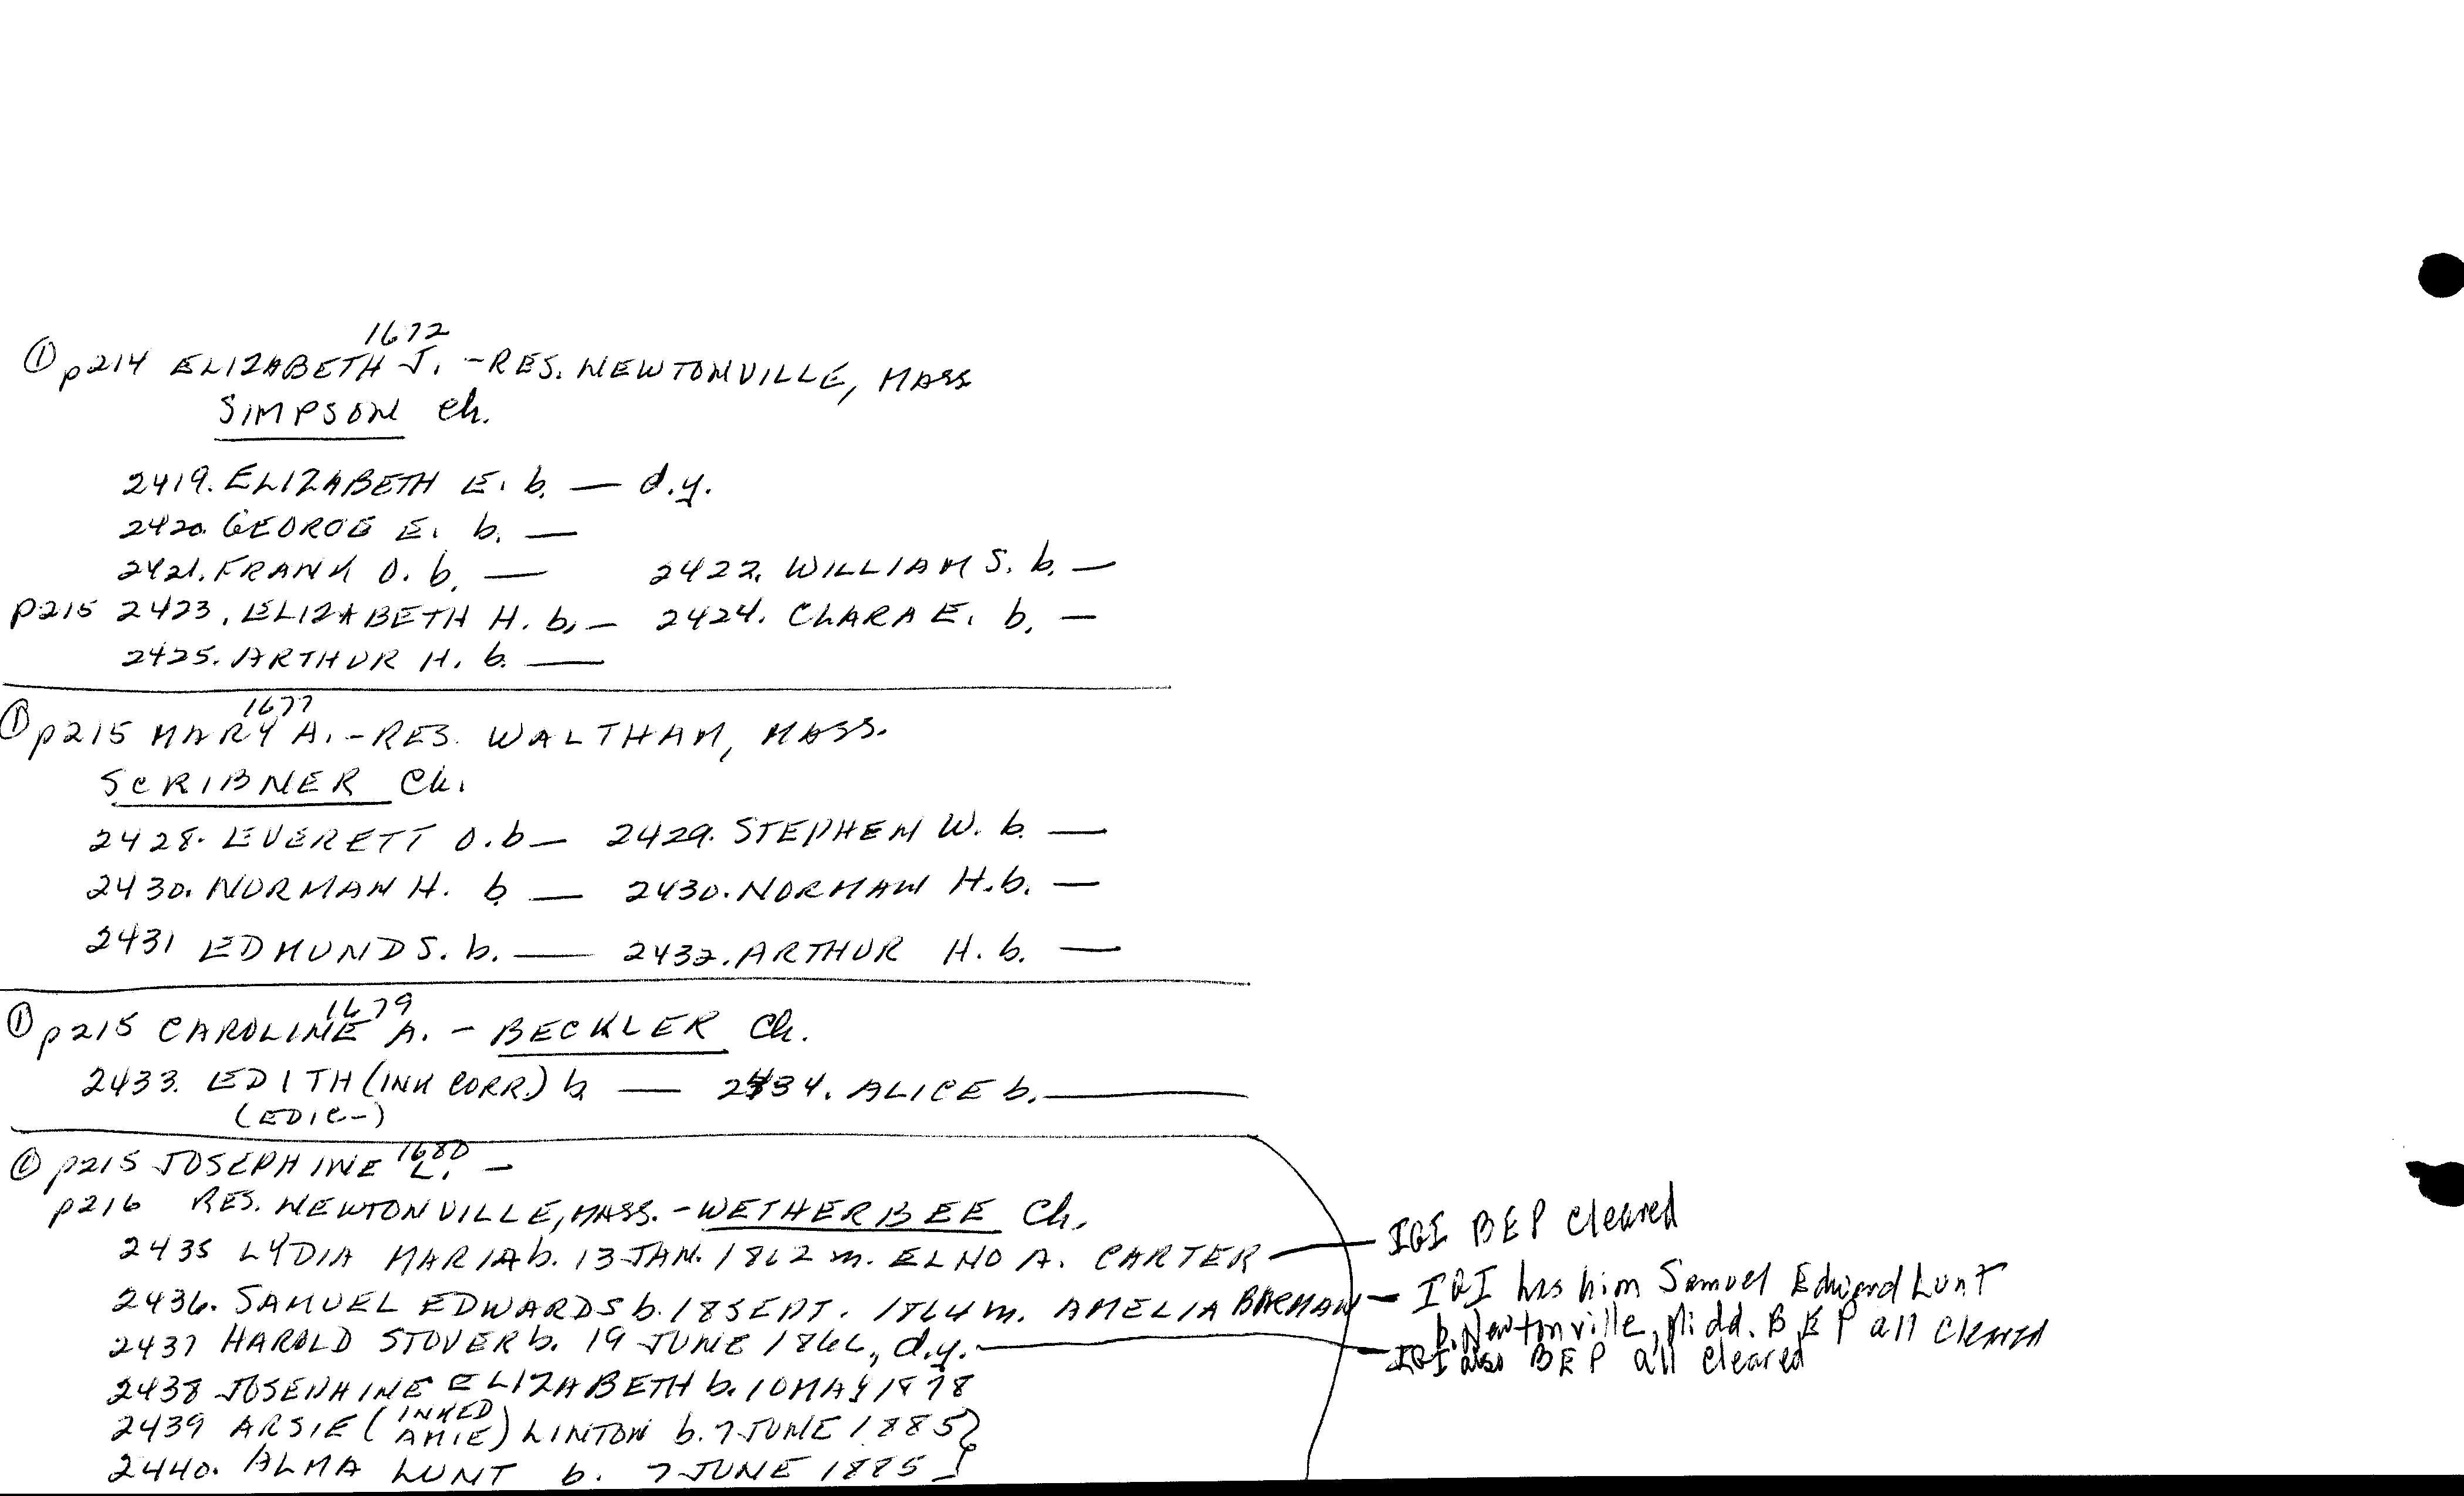 1672
① p214 ELIZABETH J. - RES. NEWTONVILLE, MASS
SIMPSON Ch.
2419. ELIZABETH E. b. — d.y.
2420. GEORGE E. b. —
2421. FRANK O. b. — 2422. WILLIAM S. b. —
p215 2423. ELIZABETH H. b. — 2424. CLARA E. b. —
2425. ARTHUR H. b. —
1677
① p215 MARY A. - RES. WALTHAM, MASS.
SCRIBNER Ch.
2428. EVERETT O. b — 2429. STEPHEN W. b. —
2430. NORMAN H. b — 2430. NORMAN H. b. —
2431 EDMUND S. b. — 2432. ARTHUR H. b. —
1679
① p215 CAROLINE A. - BECKLER Ch.
2433. EDITH (INK CORR.) b — 2434. ALICE b. —
(EDIE-)
1680
① p215 JOSEPHINE L. -
p216 RES. NEWTONVILLE, MASS. - WETHERBEE Ch.
2435 LYDIA MARIA b. 13 JAN. 1862 m. ELNO A. CARTER — IGI BEP cleared
2436. SAMUEL EDWARDS b. 18 SEPT. 1864 m. AMELIA — IGI has him Samuel Edward Lunt
b. Newtonville, Midd. BEP all cleared
2437 HAROLD STOVER b. 19 JUNE 1866, d.y. — IGI also BEP all cleared
2438 JOSEPHINE ELIZABETH b. 10 MAY 1878
2439 ARSIE (INKED AMIE) LINTON b. 7 JUNE 1885 }
2440. ALMA LUNT b. 7 JUNE 1885 }